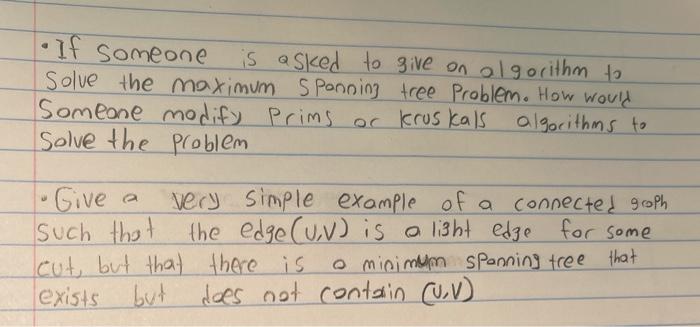 • If someone is asked to give an algorithm to
Solve the maximum Spanning tree Problem. How would
Someone modify Prims or kruskals algorithms to
Solve the problem
• Give a very simple example of a connected graph
such that the edge (u,v) is a light edge for some
cut, but that there is a minimum spanning tree that
exists but does not contain (u,v)